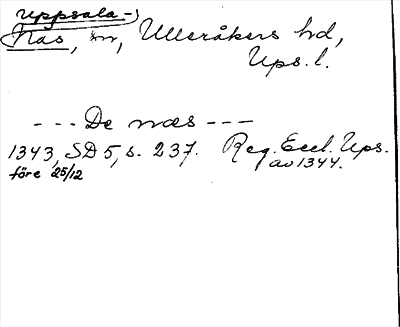 Uppsala-
Näs, sn, Ulleråkers hd,
Ups. l.
--- De næs ---
1343, SD 5, s. 237. Reg. Eccl. Ups.
före 25/12 av 1344.